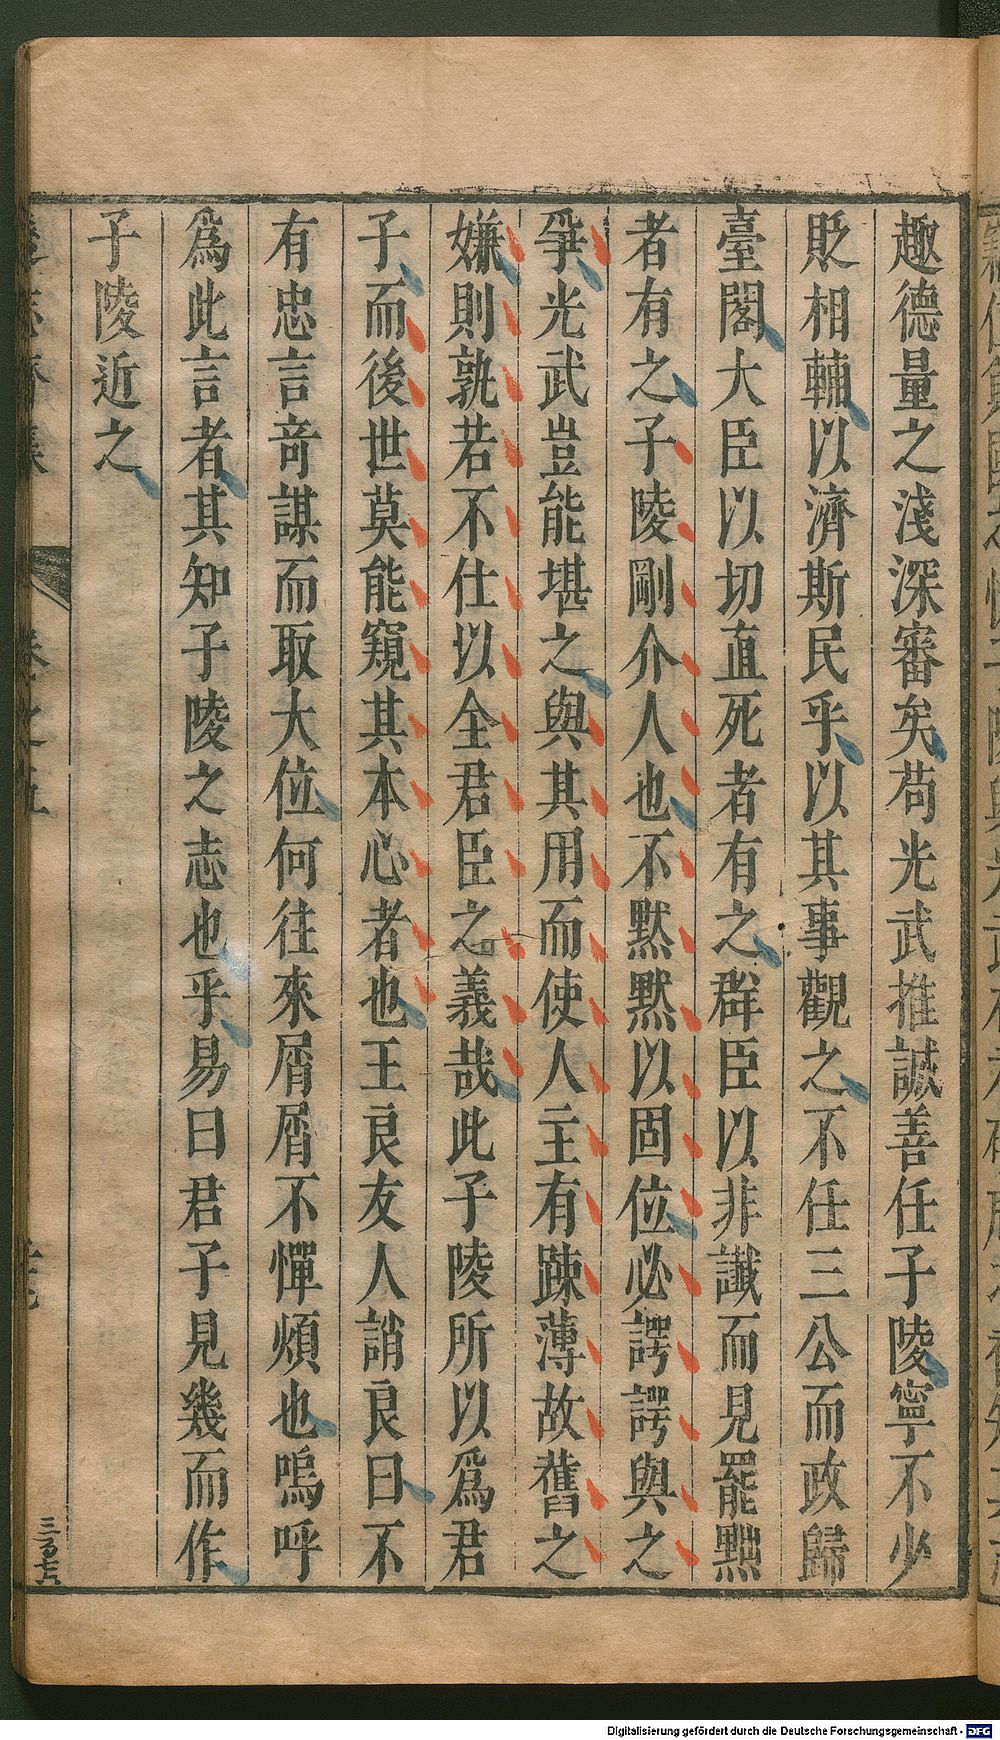 趣德量之淺深審矣苟光武推誠善任子陵寧不少
貶相輔以濟斯民乎以其事觀之不任三公而政歸
臺閣大臣以切直死者有之群臣以非讖而見罷黜
者有之子陵剛介人也不默默以固位必諤諤與之
爭光武豈能堪之與其用而使人主有疎薄故舊之
嫌則孰若不仕以全君臣之義哉此子陵所以爲君
子而後世莫能窺其本心者也王良友人誚良曰不
有忠言竒謀而取大位何往來屑屑不憚煩也嗚呼
爲此言者其知子陵之志也乎易曰君子見幾而作
子陵近之
三百七六
Digitalisierung gefördert durch die Deutsche Forschungsgemeinschaft - DFG